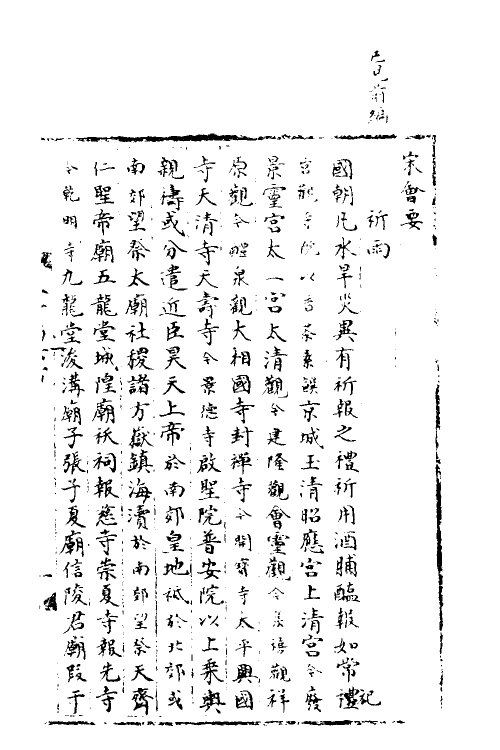 已見前編
宋會要
祈雨
國朝凡水旱災異有祈報之禮祈用酒脯醢報如常禮記
宮觀寺院以香茶素饌京城玉清昭應宮上清宮今廢
景靈宮太一宮太清觀今建隆觀會靈觀今集禧觀祥
原觀今醴泉觀大相國寺封禪寺今開寶寺太平興國
寺天清寺天壽寺今景德寺啟聖院普安院以上乘輿
親禱或分遣近臣昊天上帝於南郊皇地祇於北郊或
南郊望祭太廟社稷諸方嶽鎮海瀆於南郊望祭天齊
仁聖帝廟五龍堂城隍廟祅祠報慈寺崇夏寺報先寺
今乾明寺九龍堂浚溝廟子張子夏廟信陵君廟段干